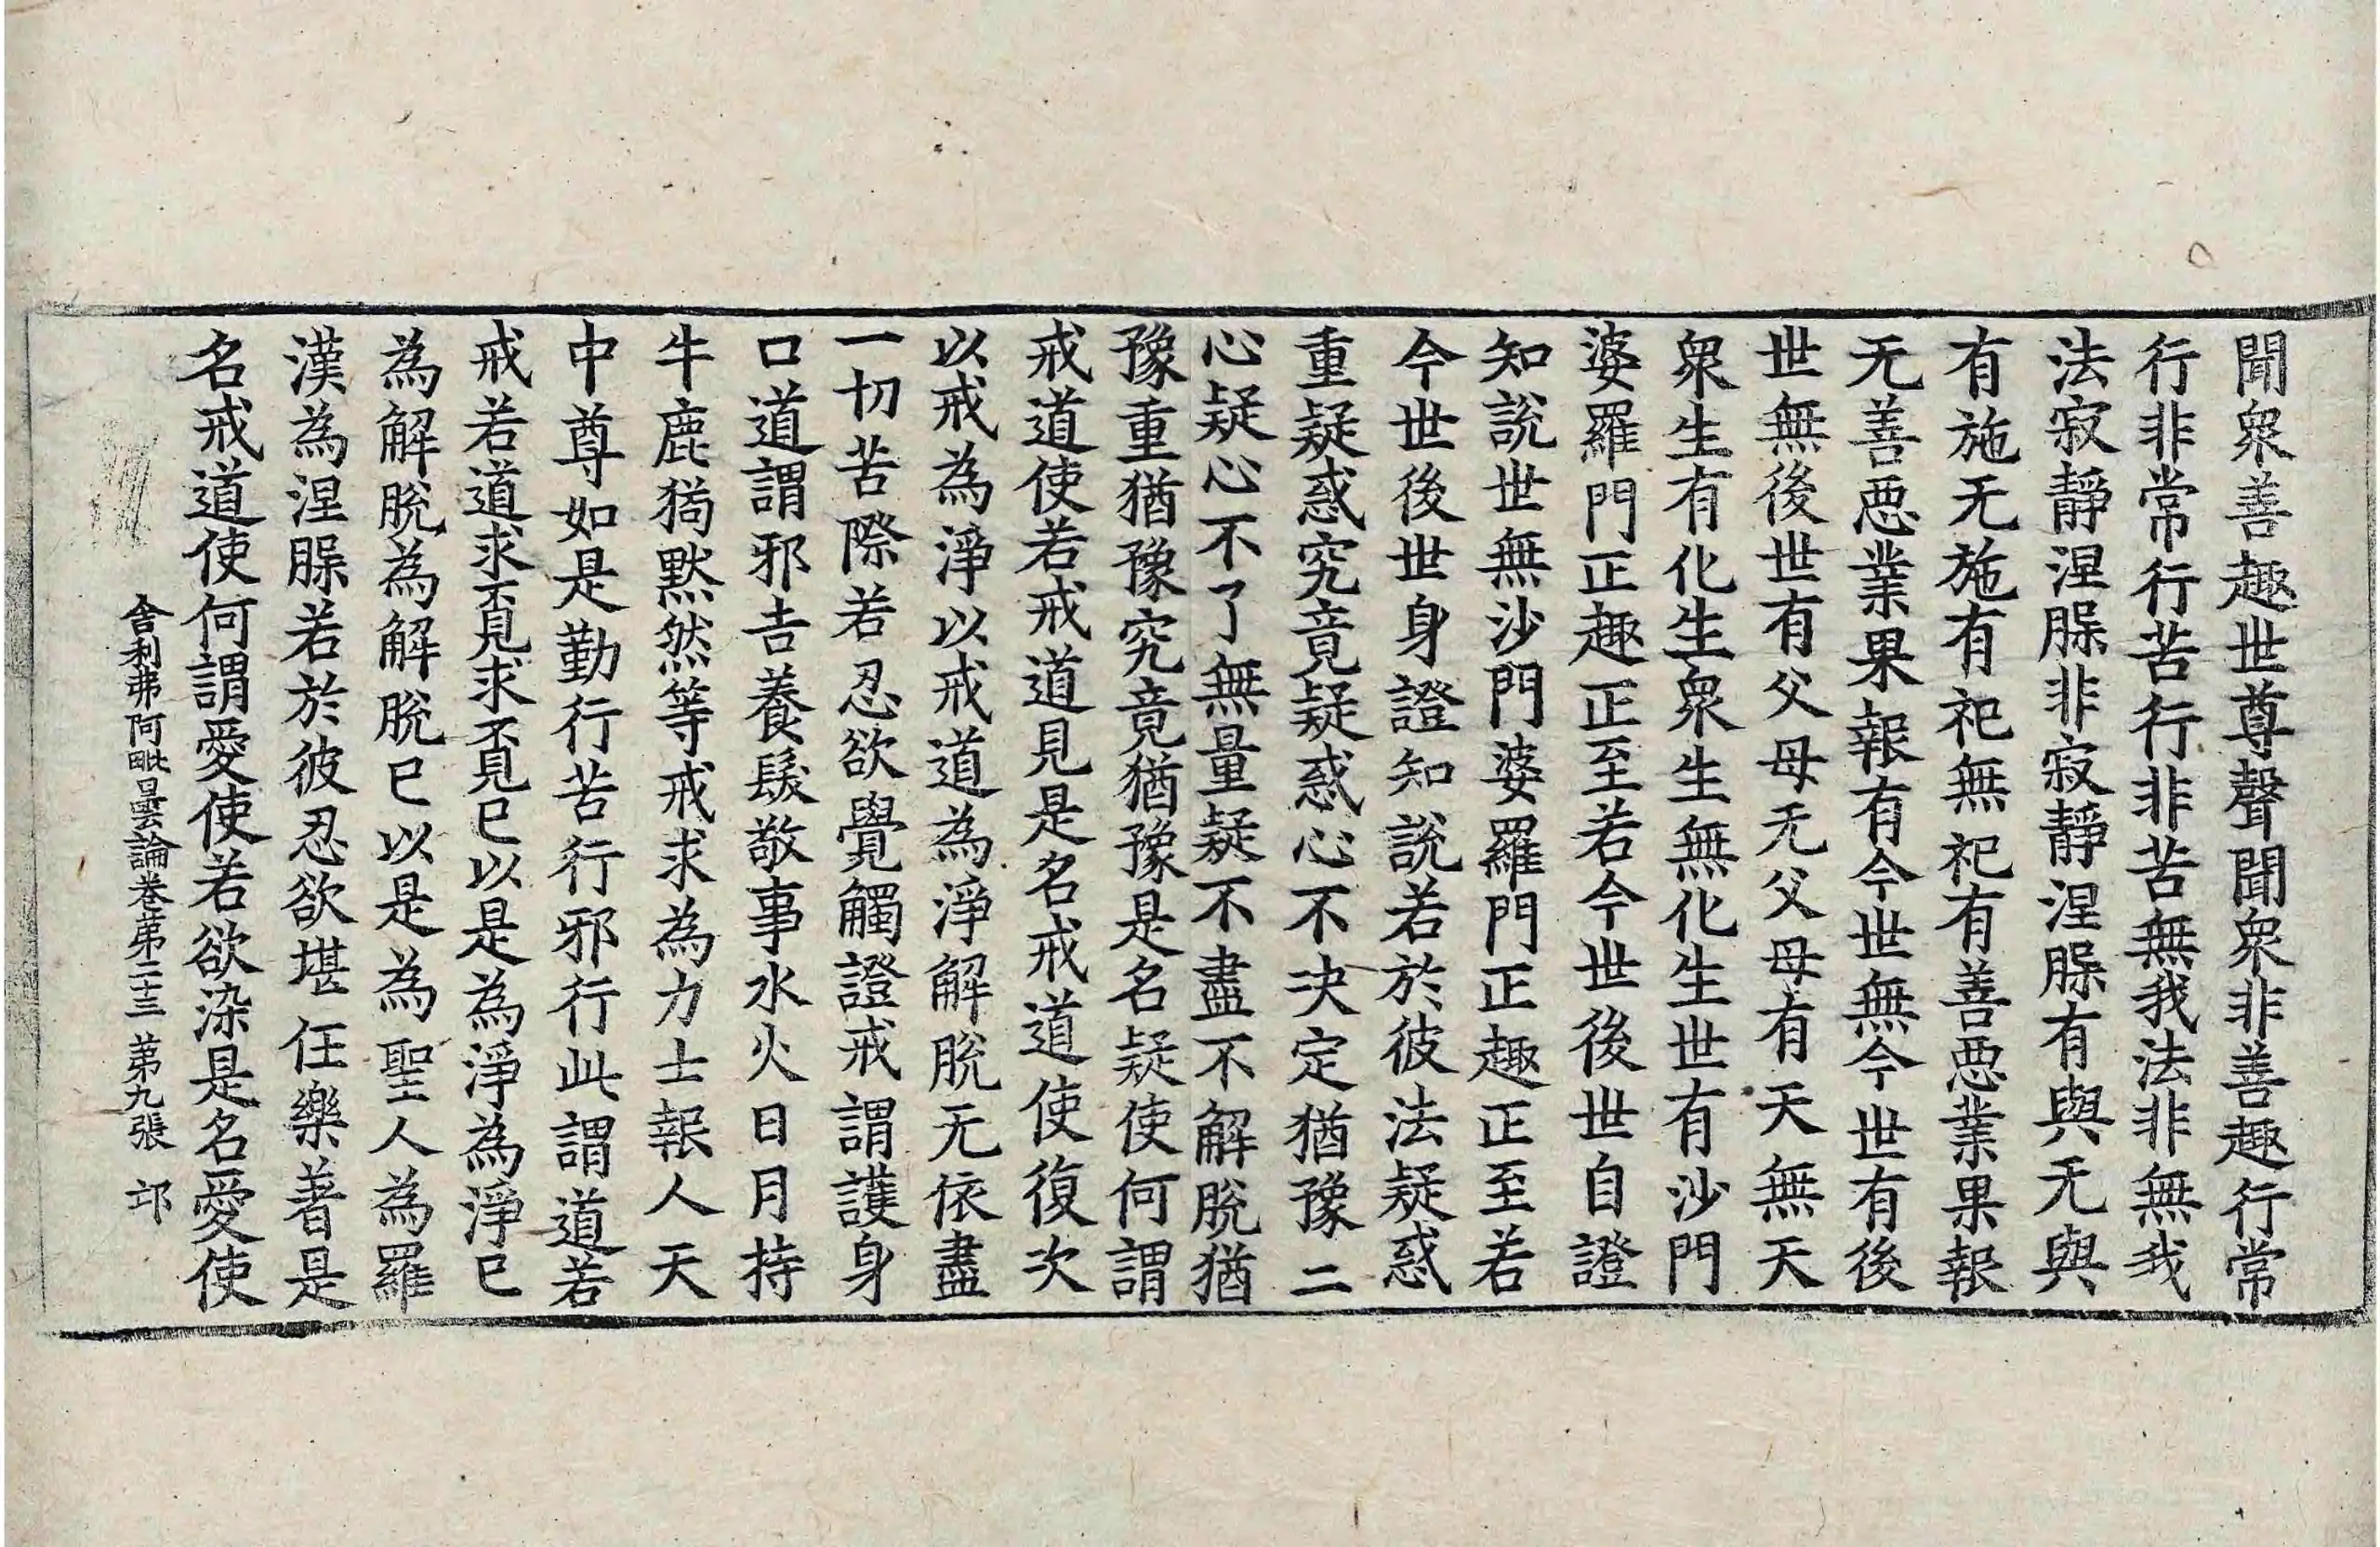 聞衆善趣世尊聲聞衆非善趣行常
行非常行苦行非苦無我法非無我
法寂靜涅槃非寂靜涅槃有與无與
有施无施有祀無祀有善惡業果報
无善惡業果報有今世無今世有後
世無後世有父母无父母有天無天
衆生有化生衆生無化生世有沙門
婆羅門正趣正至若今世後世自證
知說世無沙門婆羅門正趣正至若
今世後世身證知說若於彼法疑惑
重疑惑究竟疑惑心不决定猶豫二
心疑心不了無量疑不盡不解脫猶
豫重猶豫究竟猶豫是名疑使何謂
戒道使若戒道見是名戒道使復次
以戒為淨以戒道為淨解脫无依盡
一切苦際若忍欲覺觸證戒謂護身
口道謂邪吉養髮敬事水火日月持
牛鹿㺃默然等戒求為力士報人天
中尊如是勤行苦行邪行此謂道若
戒若道求覔求覔已以是為淨為淨已
為解脫為解脫已以是為聖人為羅
漢為涅槃若於彼忍欲堪任樂著是
名戒道使何謂愛使若欲染是名愛使
舍利弗阿毗曇論卷苐二十三 苐九張 邙